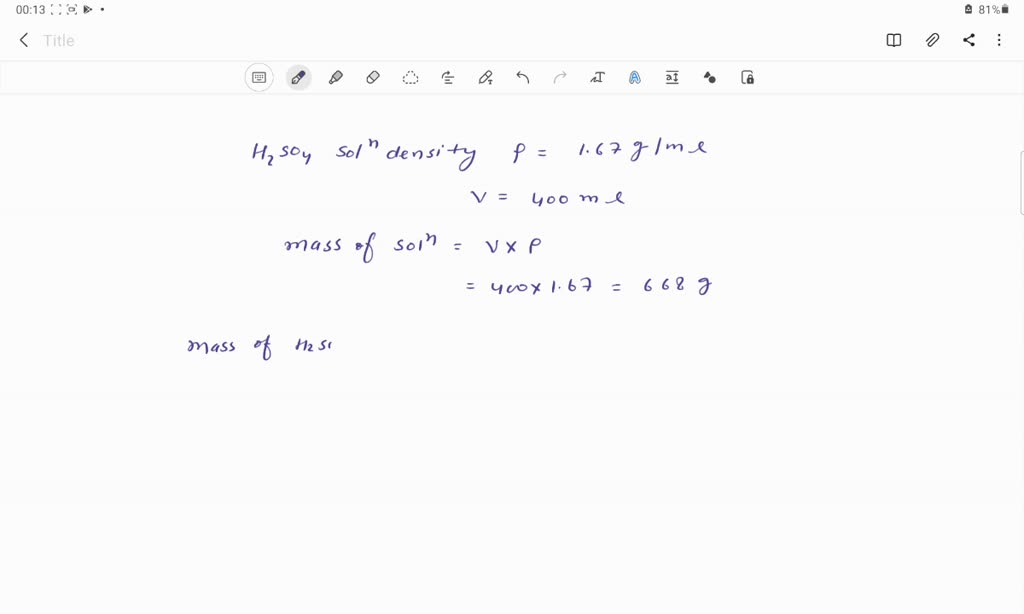 00:13
81%
Title
H₂SO₄ solⁿ density ρ = 1.67 g/ml
V = 400 ml
mass of solⁿ = V × ρ
= 400 × 1.67 = 668 g
mass of H₂S